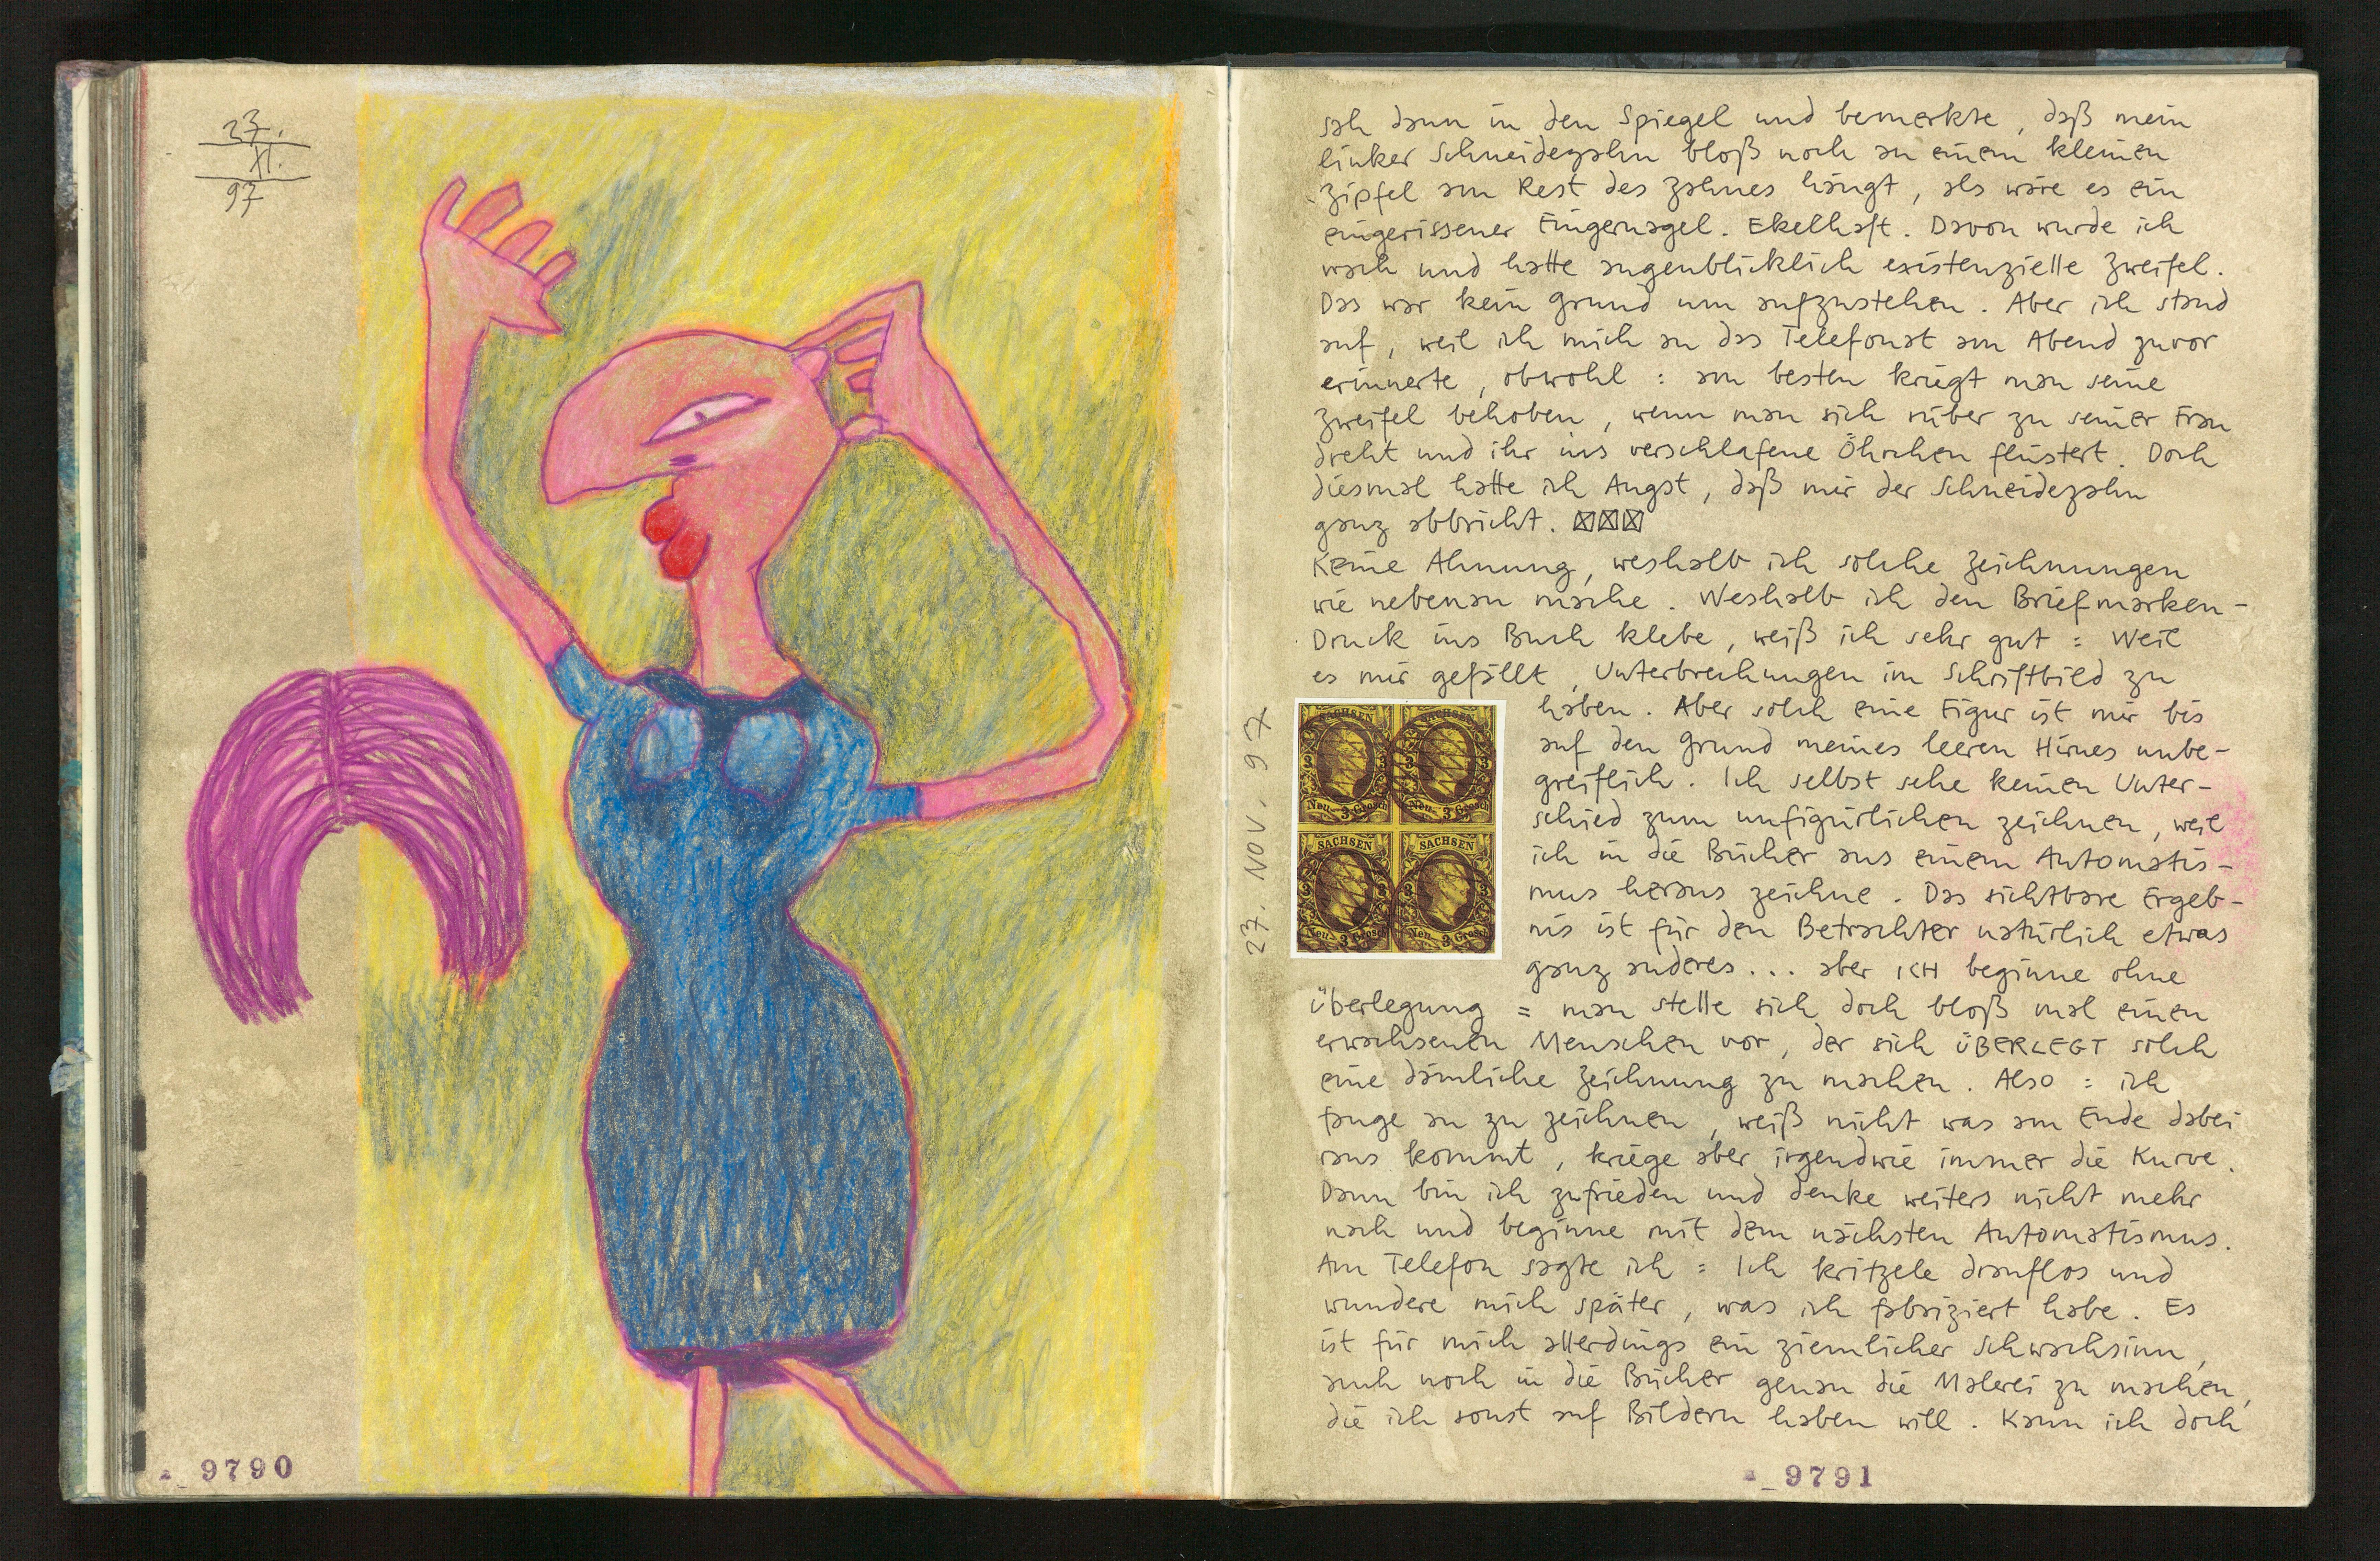 27.
XI.
97
9790
sah dann in den Spiegel und bemerkte, daß mein
linker Schneidezahn bloß noch an einem kleinen
Zipfel am Rest des Zahnes hängt, als wäre es ein
eingerissener Fingernagel. Ekelhaft. Davon wurde ich
wach und hatte augenblicklich existenzielle Zweifel.
Das war kein Grund um aufzustehen. Aber ich stand
auf, weil ich mich an das Telefonat am Abend zuvor
erinnerte, obwohl : am besten kriegt man seine
Zweifel behoben, wenn man sich rüber zu seiner Frau
dreht und ihr ins verschlafene Öhrchen flüstert. Doch
diesmal hatte ich Angst, daß mir der Schneidezahn
ganz abbricht.
Keine Ahnung, weshalb ich solche Zeichnungen
wie nebenan mache. Weshalb ich den Briefmarken-
Druck ins Buch klebe, weiß ich sehr gut : Weil
es mir gefällt, Unterbrechungen im Schriftbild zu
haben. Aber solch eine Figur ist mir bis
auf den Grund meines leeren Hirnes unbe-
greiflich. Ich selbst sehe keinen Unter-
schied zum unfigürlichen zeichnen, weil
ich in die Bücher aus einem Automatis-
mus heraus zeichne. Das sichtbare Ergeb-
nis ist für den Betrachter natürlich etwas
ganz anderes... aber ICH beginne ohne
Überlegung = man stelle sich doch bloß mal einen
erwachsenen Menschen vor, der sich ÜBERLEGT solch
eine dämliche Zeichnung zu machen. Also : ich
fange an zu zeichnen, weiß nicht was am Ende dabei
raus kommt, kriege aber irgendwie immer die Kurve.
Dann bin ich zufrieden und denke weiters nicht mehr
nach und beginne mit dem nächsten Automatismus.
Am Telefon sagte ich : Ich kritzele drauflos und
wundere mich später, was ich fabriziert habe. Es
ist für mich allerdings ein ziemlicher Schwachsinn,
auch noch in die Bücher genau die Malerei zu machen,
die ich sonst auf Bildern haben will. Kann ich doch
27. NOV. 97
SACHSEN SACHSEN
3 3
Neu- 3 Grosch Neu- 3 Grosch
SACHSEN SACHSEN
3 3
Neu- 3 Grosch Neu- 3 Grosch
9791